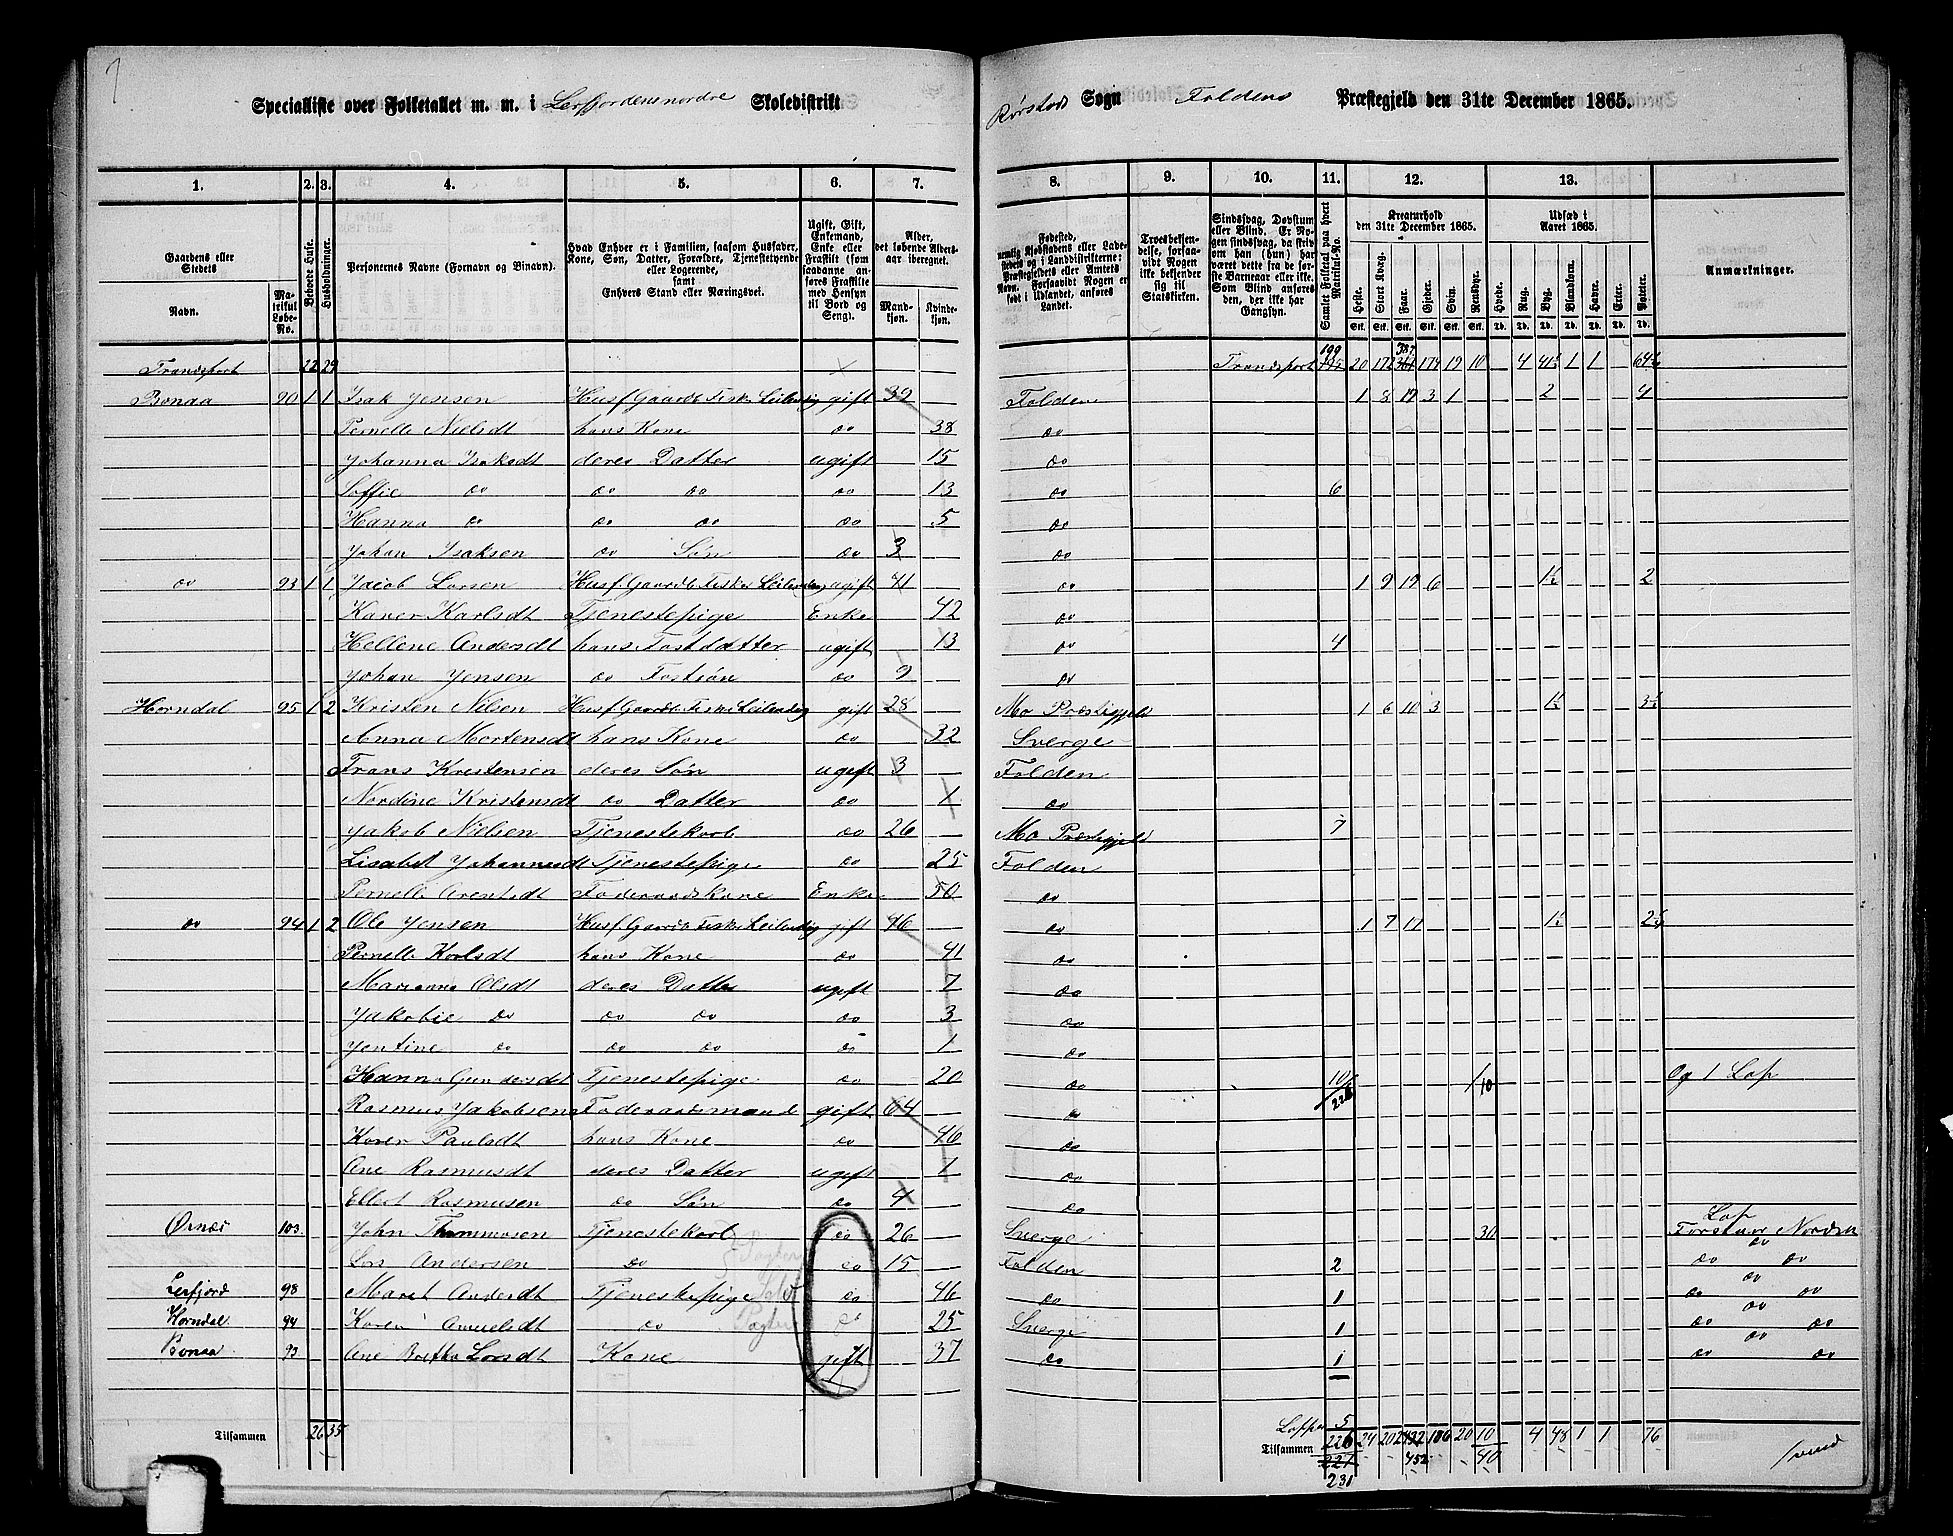 Specialliste over Folketallet m. m. i Lerfjordens nordre Skoledistrikt
Rørstad Sogn Foldens Præstegjeld den 31te December 1865.
1. 2. 3. 4. 5. 6. 7. 8. 9. 10. 11. 12. 13.
Gaardens eller Stedets
Navn.
Matrikul Løbe-No.
Beboede Huse.
Husholdninger.
Personernes Navne (Fornavn og Binavn).
Hvad Enhver er i Familien, saasom Husfader, Kone, Søn, Datter, Forældre, Tjenestetyende eller Logerende,
samt
Enhvers Stand eller Næringsvei.
Ugift, Gift, Enkemand, Enke eller Fraskilt (som saadanne anføres Fraskilte med Hensyn til Bord og Seng).
Alder, det løbende Aldersaar iberegnet.
Mandkjøn. Kvindekjøn.
Fødested,
Troesbekjendelse, forsaavidt Nogen ikke bekjender sig til Statskirken.
Sindssvag, Døvstum eller Blind.
Samlet Folketal paa hvert Matrikul-No.
Kreaturhold den 31te December 1865.
Heste. Stort Kvæg. Faar. Gjeder. Svin. Rensdyr.
Udsæd i Aaret 1865.
Hvede. Rug. Byg. Blandkorn. Havre. Erter. Poteter.
Anmærkninger.
Transport 22 29 Transport 199 20 172 387 174 19 10 4 1 1
Bonaa 90 1 1 Isak Jensen Husf. Gaardb. Fisker Leilending gift 39 Folden 1 8 19 3 1 2 4
Pernelle Nielsdt hans Kone do 38 do
Johanna Isaksdt deres Datter ugift 15 do
Soffie do do do do 13 do 6
Hanna do do do do 5 do
Johan Isaksen do Søn do 3 do
do 93 1 1 Jacob Larsen Husf. Gaardb. Fisker Leilending ugift 41 do 1 9 19 6 1½ 2
Karen Karlsdt Tjenestepige Enke 42 do
Hellene Andersdt hans Fostdatter ugift 13 do 4
Johan Jensen do Fostsøn do 9 do
Horndal 95 1 2 Kristen Nilsen Husf. Gaardb. Fisker Leilending gift 28 Mo Præstegjeld 1 6 10 3 1½ 3½
Anna Mortensdt hans Kone do 32 Sverge
Frans Kristensen deres Søn ugift 3 Folden
Nordine Kristensdt do Datter do 1 do
Jakob Nielsen Tjenestekarl do 26 Mo Præstegjeld 7
Lisabet Johannesdt Tjenestepige do 25 Folden
Pernelle Arentsdt Føderaadskone Enke 50 do
do 94 1 2 Ole Jensen Husf. Gaardb. Fisker Leilending gift 46 do 1 7 17 1½
Pernelle Karlsdt hans Kone do 41 do
Marianna Olsdt deres Datter ugift 7 do
Jakobie do do do do 3 do
Jentine do do do do 1 do
Hanna Gundersdt Tjenestepige do 20 do 10 10 Og 1 Lap
Rasmus Jakobsen Føderaadsmand gift 64 do
Karen Paulsdt hans Kone do 46 do
Ane Rasmusdt deres Datter ugift 1 do
Ellert Rasmusen do Søn do 4 do
Ørnæs 103 John Thommasen Tjenestekarl do 26 Sverge 30 Lap
Lars Andersen do do 15 Folden 2 do do
Lerfjord 98 Maret Andersdt Tjenestepige do 46 do 1 do do
Horndal 94 Karen do do 25 Sverge 1 do do
Bonaa 93 Ane Kone gift 37 do 1 do do
Tilsammen 26 35
Lapper 5
Tilsammen 226 24 20 10 4 48 1 1 76
221 452 40
231